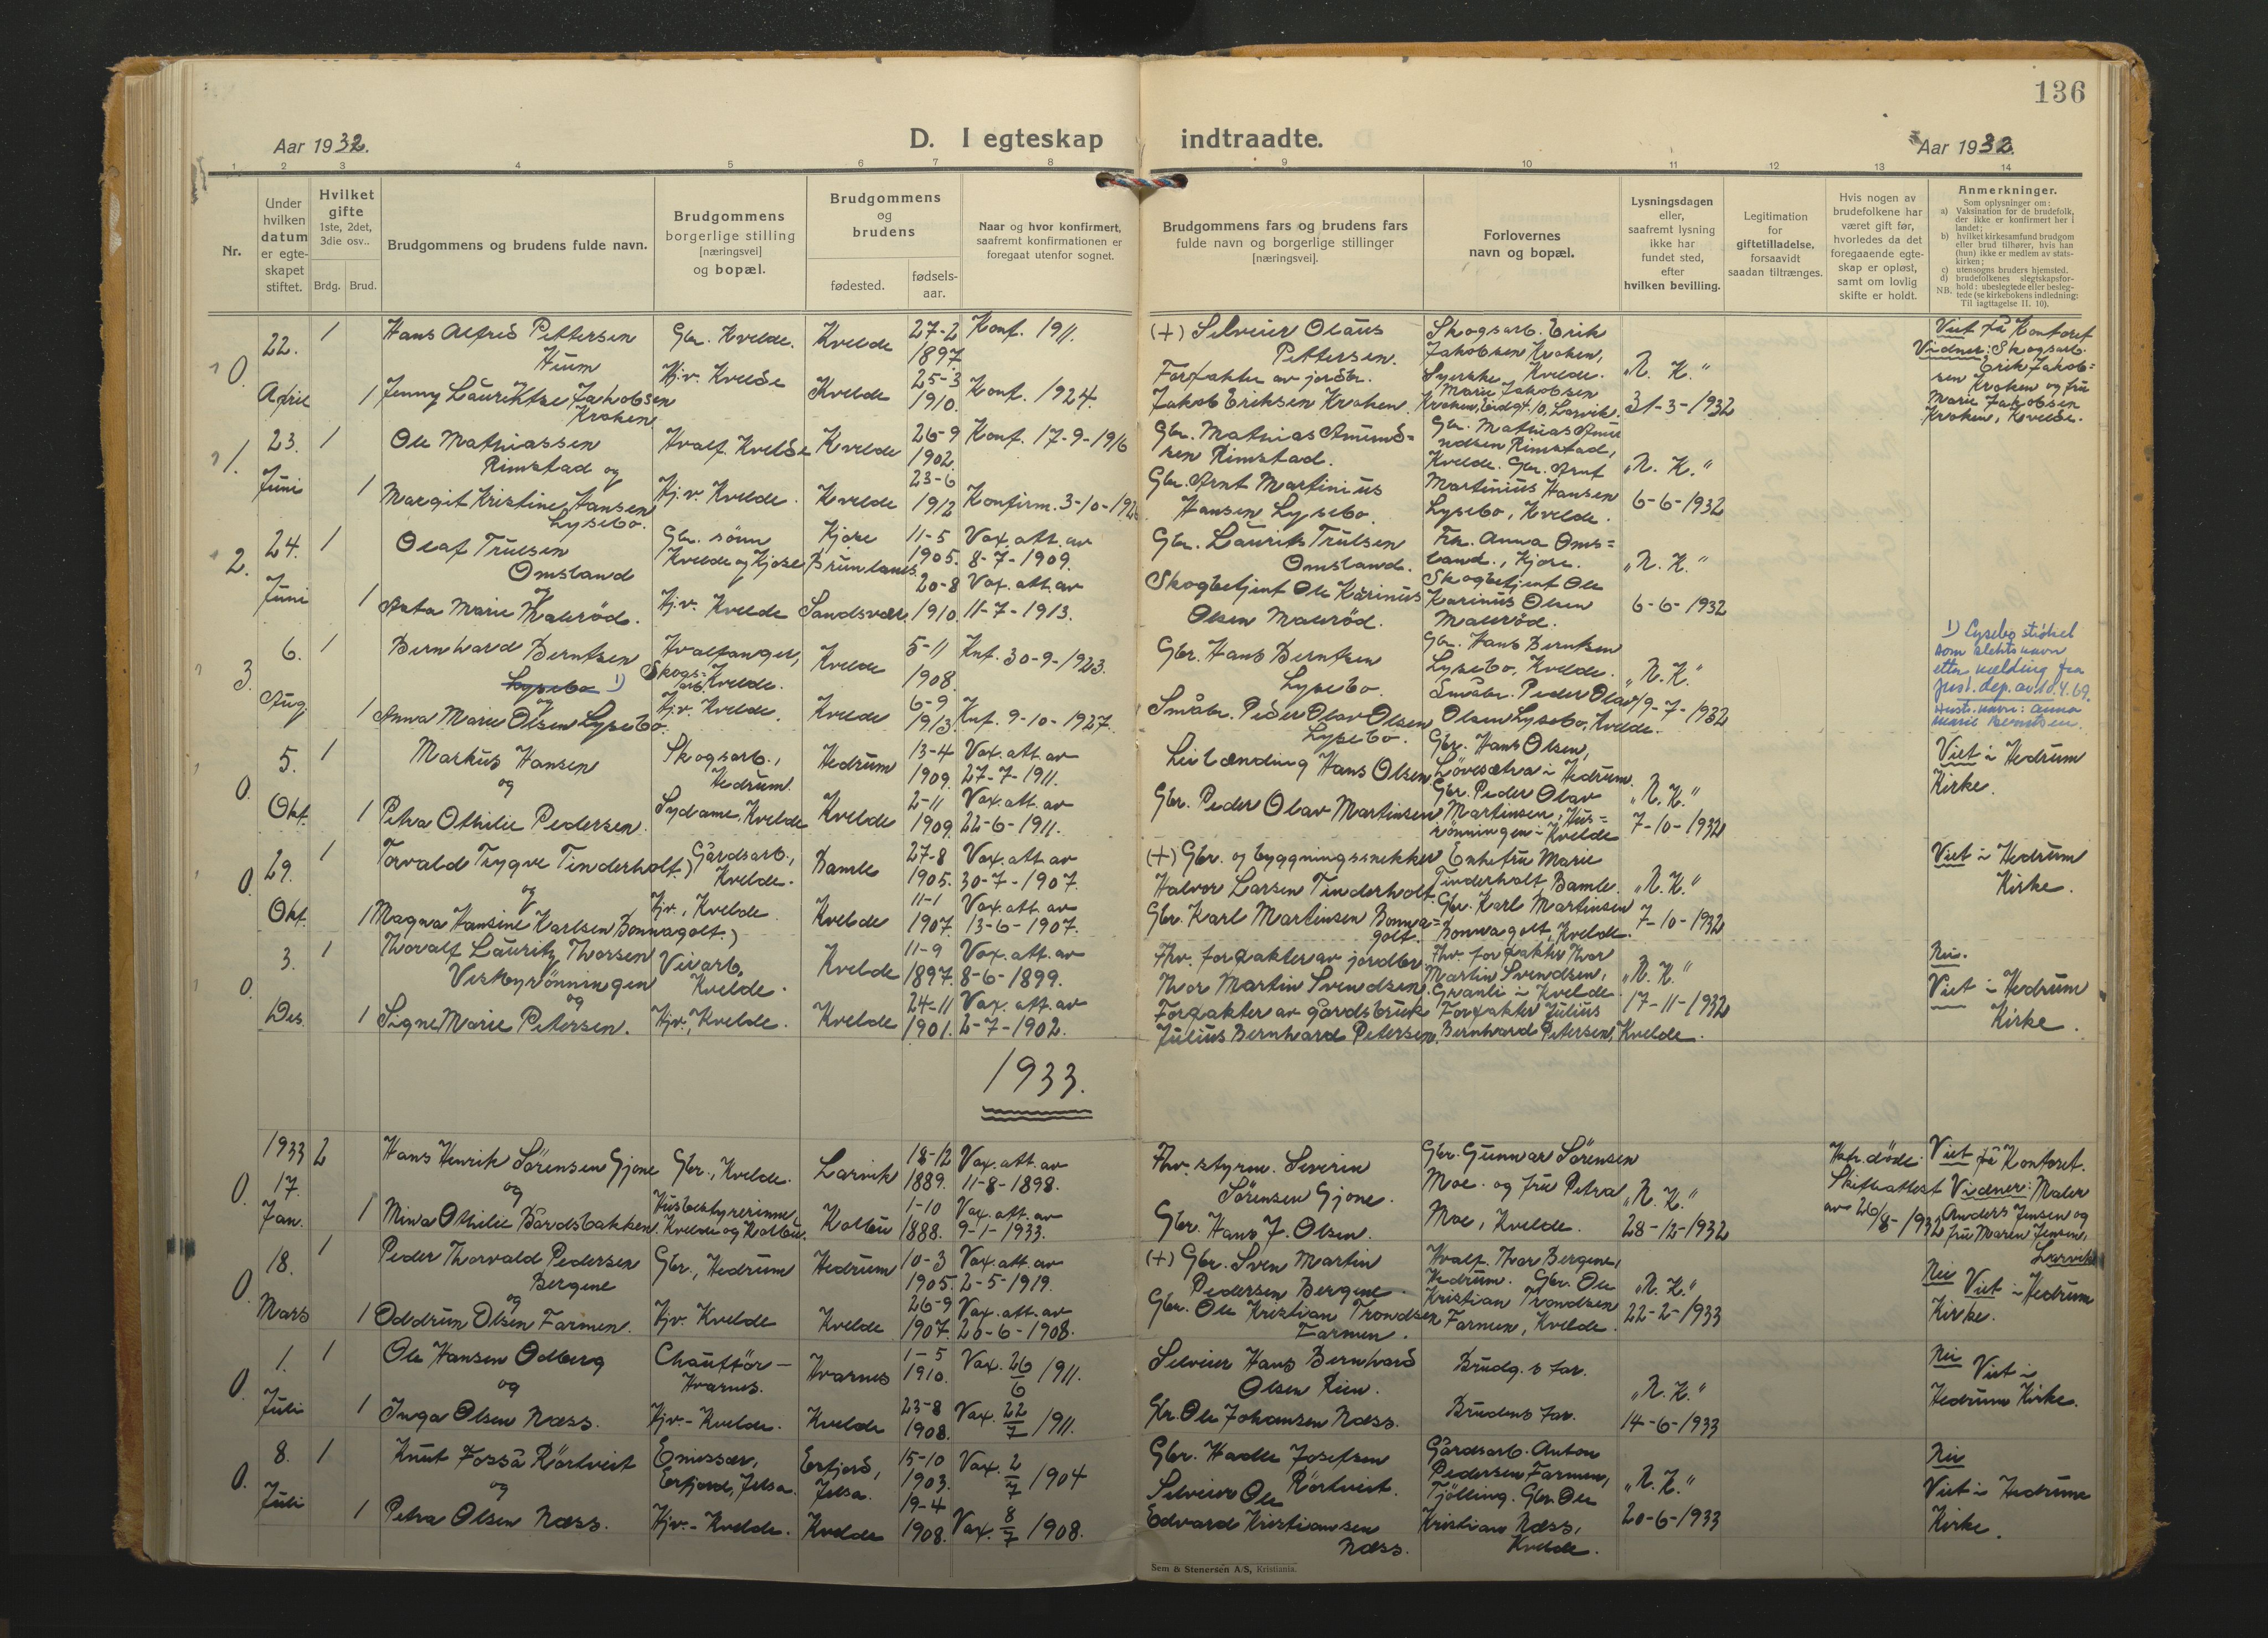 136
Aar 1932.
D. I egteskap indtraadte.
Aar 1932.
1 2 3 4 5 6 7 8 9 10 11 12 13 14
Nr.
Under hvilken datum er egte-skapet stiftet.
Hvilket gifte 1ste, 2det, 3die osv..
Brdg. Brud.
Brudgommens og brudens fulde navn.
Brudgommens borgerlige stilling [næringsvei] og bopæl.
Brudgommens og brudens
fødested.
fødsels-aar.
Naar og hvor konfirmert, saafremt konfirmationen er foregaat utenfor sognet.
Brudgommens fars og brudens fars fulde navn og borgerlige stillinger [næringsvei].
Forlovernes navn og bopæl.
Lysningsdagen eller, saafremt lysning ikke har fundet sted, efter hvilken bevilling.
Legitimation for giftetilladelse, forsaavidt saadan tiltrænges.
Hvis nogen av brudefolkene har været gift før, hvorledes da det foregaaende egte-skap er opløst, samt om lovlig skifte er holdt.
Anmerkninger.
Som oplysninger om:
a) Vaksination for de brudefolk, der ikke er konfirmert her i landet;
b) hvilket kirkesamfund brudgom eller brud tilhører, hvis han (hun) ikke er medlem av stats-kirken;
c) utensogns bruders hjemsted.
d) brudefolkenes slegtskapsfor-hold: ubeslegtede eller besleg-tede (se kirkebokens indledning: Til iagttagelse II. 10).
NB.
0. 22. April
1 Hans Alfred Pettersen Hum
Gbr. Kvelde. Kvelde 27-2 1897. Konf. 1911.
(+) Selveier Olaus Pettersen.
Skogsarb. Erik Jakobsen Kroken, Kvelde.
1 Jenny Laurentse Jakobsen Kroken
Hj.v. Kvelde Kvelde 25-3 1910. Konf. 1924.
Forpakter av jordbr. Jakob Eriksen Kroken.
Syerske Marie Jakobsen Kroken, Larvik.
"N. K." 31-3-1932
Viet på Kontoret Vidner: Skogsarb. Erik Jakob=sen Kroken og fru Marie Jakobsen Kroken, Kvelde.
1. 23. Juni
1 Ole Mathiassen Rimstad og
Hvalf. Kvelde Kvelde 26-9 1902. Konf. 17-9-1916
Gbr. Mathias Amund=sen Rimstad.
Gbr. Mathias Amundsen Rimstad, Kvelde.
1 Margit Kristine Hansen Lysebo.
Hj.v. Kvelde. Kvelde 23-6 1912 Konfirm. 3-10-1926
Gbr. Arnt Martinius Hansen Lysebo.
Gbr. Arnt Martinius Hansen Lysebo, Kvelde.
"N. K." 6-6-1932
2. 24. Juni
1 Olaf Trulsen Omsland og
Gbr. sønn Kvelde og Kjose Kjose Brunlanes 11-5 1905. Vax. att. av 8-7-1909.
Gbr. Laurits Trulsen Omsland.
Frk. Anna Oms=land., Kjose.
1 Asta Marie Maurød.
Hj.v. Kvelde Sandsvær 20-8 1910. Vax. att. av 11-7-1913.
Skogbetjent Ole Karinius Olsen Maurød.
Skogbetjent Ole Karinius Olsen Maurød.
"N. K." 6-6-1932
3. 6. Aug.
1 Bernhard Berntsen Lysebo 1) og
Hvalfanger, Skogs=arb. Kvelde. Kvelde 5-11 1908. Knf. 30-9-1923.
Gbr. Hans Berntsen Lysebo.
Gbr. Hans Berntsen Lysebo, Kvelde.
1 Anna Marie Olsen Lysebo.
Hj.v. Kvelde. Kvelde 6-9 1913. Knf. 9-10-1927.
Småbr. Peder Olav Olsen Lysebo.
Småbr. Peder Olav Olsen Lysebo, Kvelde.
"N. K." 19-7-1932
1) Lysebo strøket som slektsnavn etter melding fra Just. dep. av 10.4.69. Hustr. navn: Anna Marie Berntsen.
0. 5. Okt.
1 Markus Hansen og
Skogsarb., Hedrum. Hedrum 13-4 1909. Vax. att. av 27-7-1911.
Leilænding Hans Olsen
Gbr. Hans Olsen, Løvesætra i Hedrum.
1 Petra Othilie Pedersen.
Sydame, Kvelde Kvelde 2-11 1909. Vax. att. av 22-6-1911.
Gbr. Peder Olav Martinsen
Gbr. Peder Olav Martinsen, Hus=rønningen i Kvelde
"N. K." 7-10-1932
Viet i Hedrum Kirke.
0. 29. Okt.
1 Torvald Trygve Tinderholt.) og
Gårdsarb., Kvelde. Bamle 27-8 1905. Vax. att. av 30-7-1907.
(+) Gbr. og byggningssnekker Halvor Larsen Tinderholt.
Enkefru Marie Tinderholt, Bamle.
1 Magna Hansine Karlsen Bonnagolt.)
Hjv., Kvelde Kvelde 11-1 1907. Vax. att. av 13-6-1907.
Gbr. Karl Martinsen Bonna=golt.
Gbr. Karl Martinsen Bonnagolt, Kvelde.
"N. K." 7-10-1932
Viet i Hedrum Kirke.
0. 3. Des.
1 Thoralf Lauritz Thorsen Vestbyrønningen og
Veiarb., Kvelde. Kvelde 11-9 1897. Vax. att. av 8-6-1899.
Fhv. forpakter av jordbr. Thor Martin Svendsen.
Fhv. forpakter Thor Martin Svendsen, Granli i Kvelde.
1 Signe Marie Petersen.
Hjv., Kvelde. Kvelde 24-11 1901. Vax. att. av 2-7-1902.
Forpakter av gårdsbruk Julius Bernhard Petersen.
Forpakter Julius Bernhard Petersen, Kvelde.
"N. K." 17-11-1932
Nei. Viet i Hedrum Kirke.
1933.
0. 1933 17. Jan.
2 Hans Henrik Sørensen Gjone og
Gbr., Kvelde. Larvik 18-12 1889. Vax. att. av 11-8-1898.
Fhv. styrm. Severin Sørensen Gjone.
Gbr. Gunnar Sørensen Moe og fru Petra Moe, Kvelde.
1 Mina Othilie Bårdsbakken.
Husbestyrerinne, Kvelde og Kolbu. Kolbu 1-10 1888. Vax. att. av 9-1-1933.
Gbr. Hans J. Olsen.
"N. K." 28-12-1932
Hstr. døde. Skifteattest av 26/8-1932
Viet på Kontoret. Vidner: Maler Anders Jensen og fru Maren Jensen, Larvik
0. 18. Mars
1 Peder Thorvald Pedersen Bergene og
Gbr., Hedrum Hedrum 10-3 1905. Vax. att. av 2-5-1919.
(+) Gbr. Sven Martin Pedersen Bergene.
Hvalf. Thor Bergene, Hedrum.
1 Oddrun Olsen Farmen.
Hjv. Kvelde Kvelde 26-9 1907. Vax. att. av 26-6-1908.
Gbr. Ole Kristian Trondsen Farmen.
Gbr. Ole Kristian Trondsen Farmen, Kvelde.
"N. K." 22-2-1933
Nei Viet i Hedrum Kirke.
0. 1. Juli
1 Ole Hansen Odberg og
Chauffør - Hvarnes. Hvarnes 1-5 1910. Vax. 26/6 1911.
Selveier Hans Bernhard Olsen Rien.
Brudg.s far.
1 Inga Olsen Næss.
Hjv.- Kvelde. Kvelde 23-8 1908. Vax. 22/7 1911.
Gbr. Ole Johansen Næss.
Brudens far.
"N. K." 14-6-1933
Nei Viet i Hedrum Kirke.
0. 8. Juli
1 Knut Fosså Rørtveit og
Emissær, Erfjord, Jelsa. Erfjord, Jelsa. 15-10 1903. Vax. 2/7 1904
Gbr. Hadle Josefsen Rørtveit.
Gårdsarb. Anton Pedersen Farmen, Tjølling.
1 Petra Olsen Næss.
Hjv.- Kvelde. Kvelde 19-4 1908. Vax. 8/7 1908.
Selveier Ole Edvard Kristiansen Næss.
Gbr. Ole Kristian Næss, Kvelde.
"N. K." 20-6-1933
Nei Viet i Hedrum Kirke.
Sem & Stenersen A/S, Kristiania.